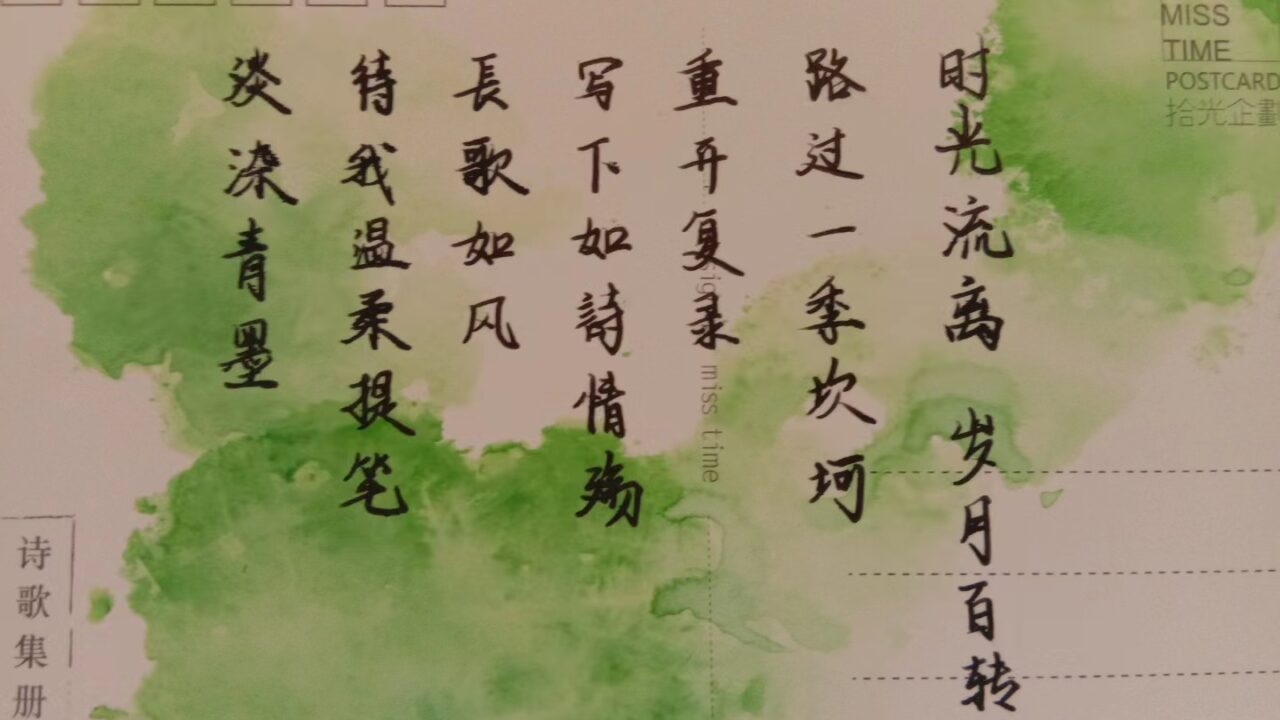 时光流离 岁月百转
路过一季坎坷
重开复录
写下如詩情殇
長歌如风
待我温柔提笔
淡染青墨
MISS
TIME
POSTCARD
拾光企劃
miss time
诗歌集册